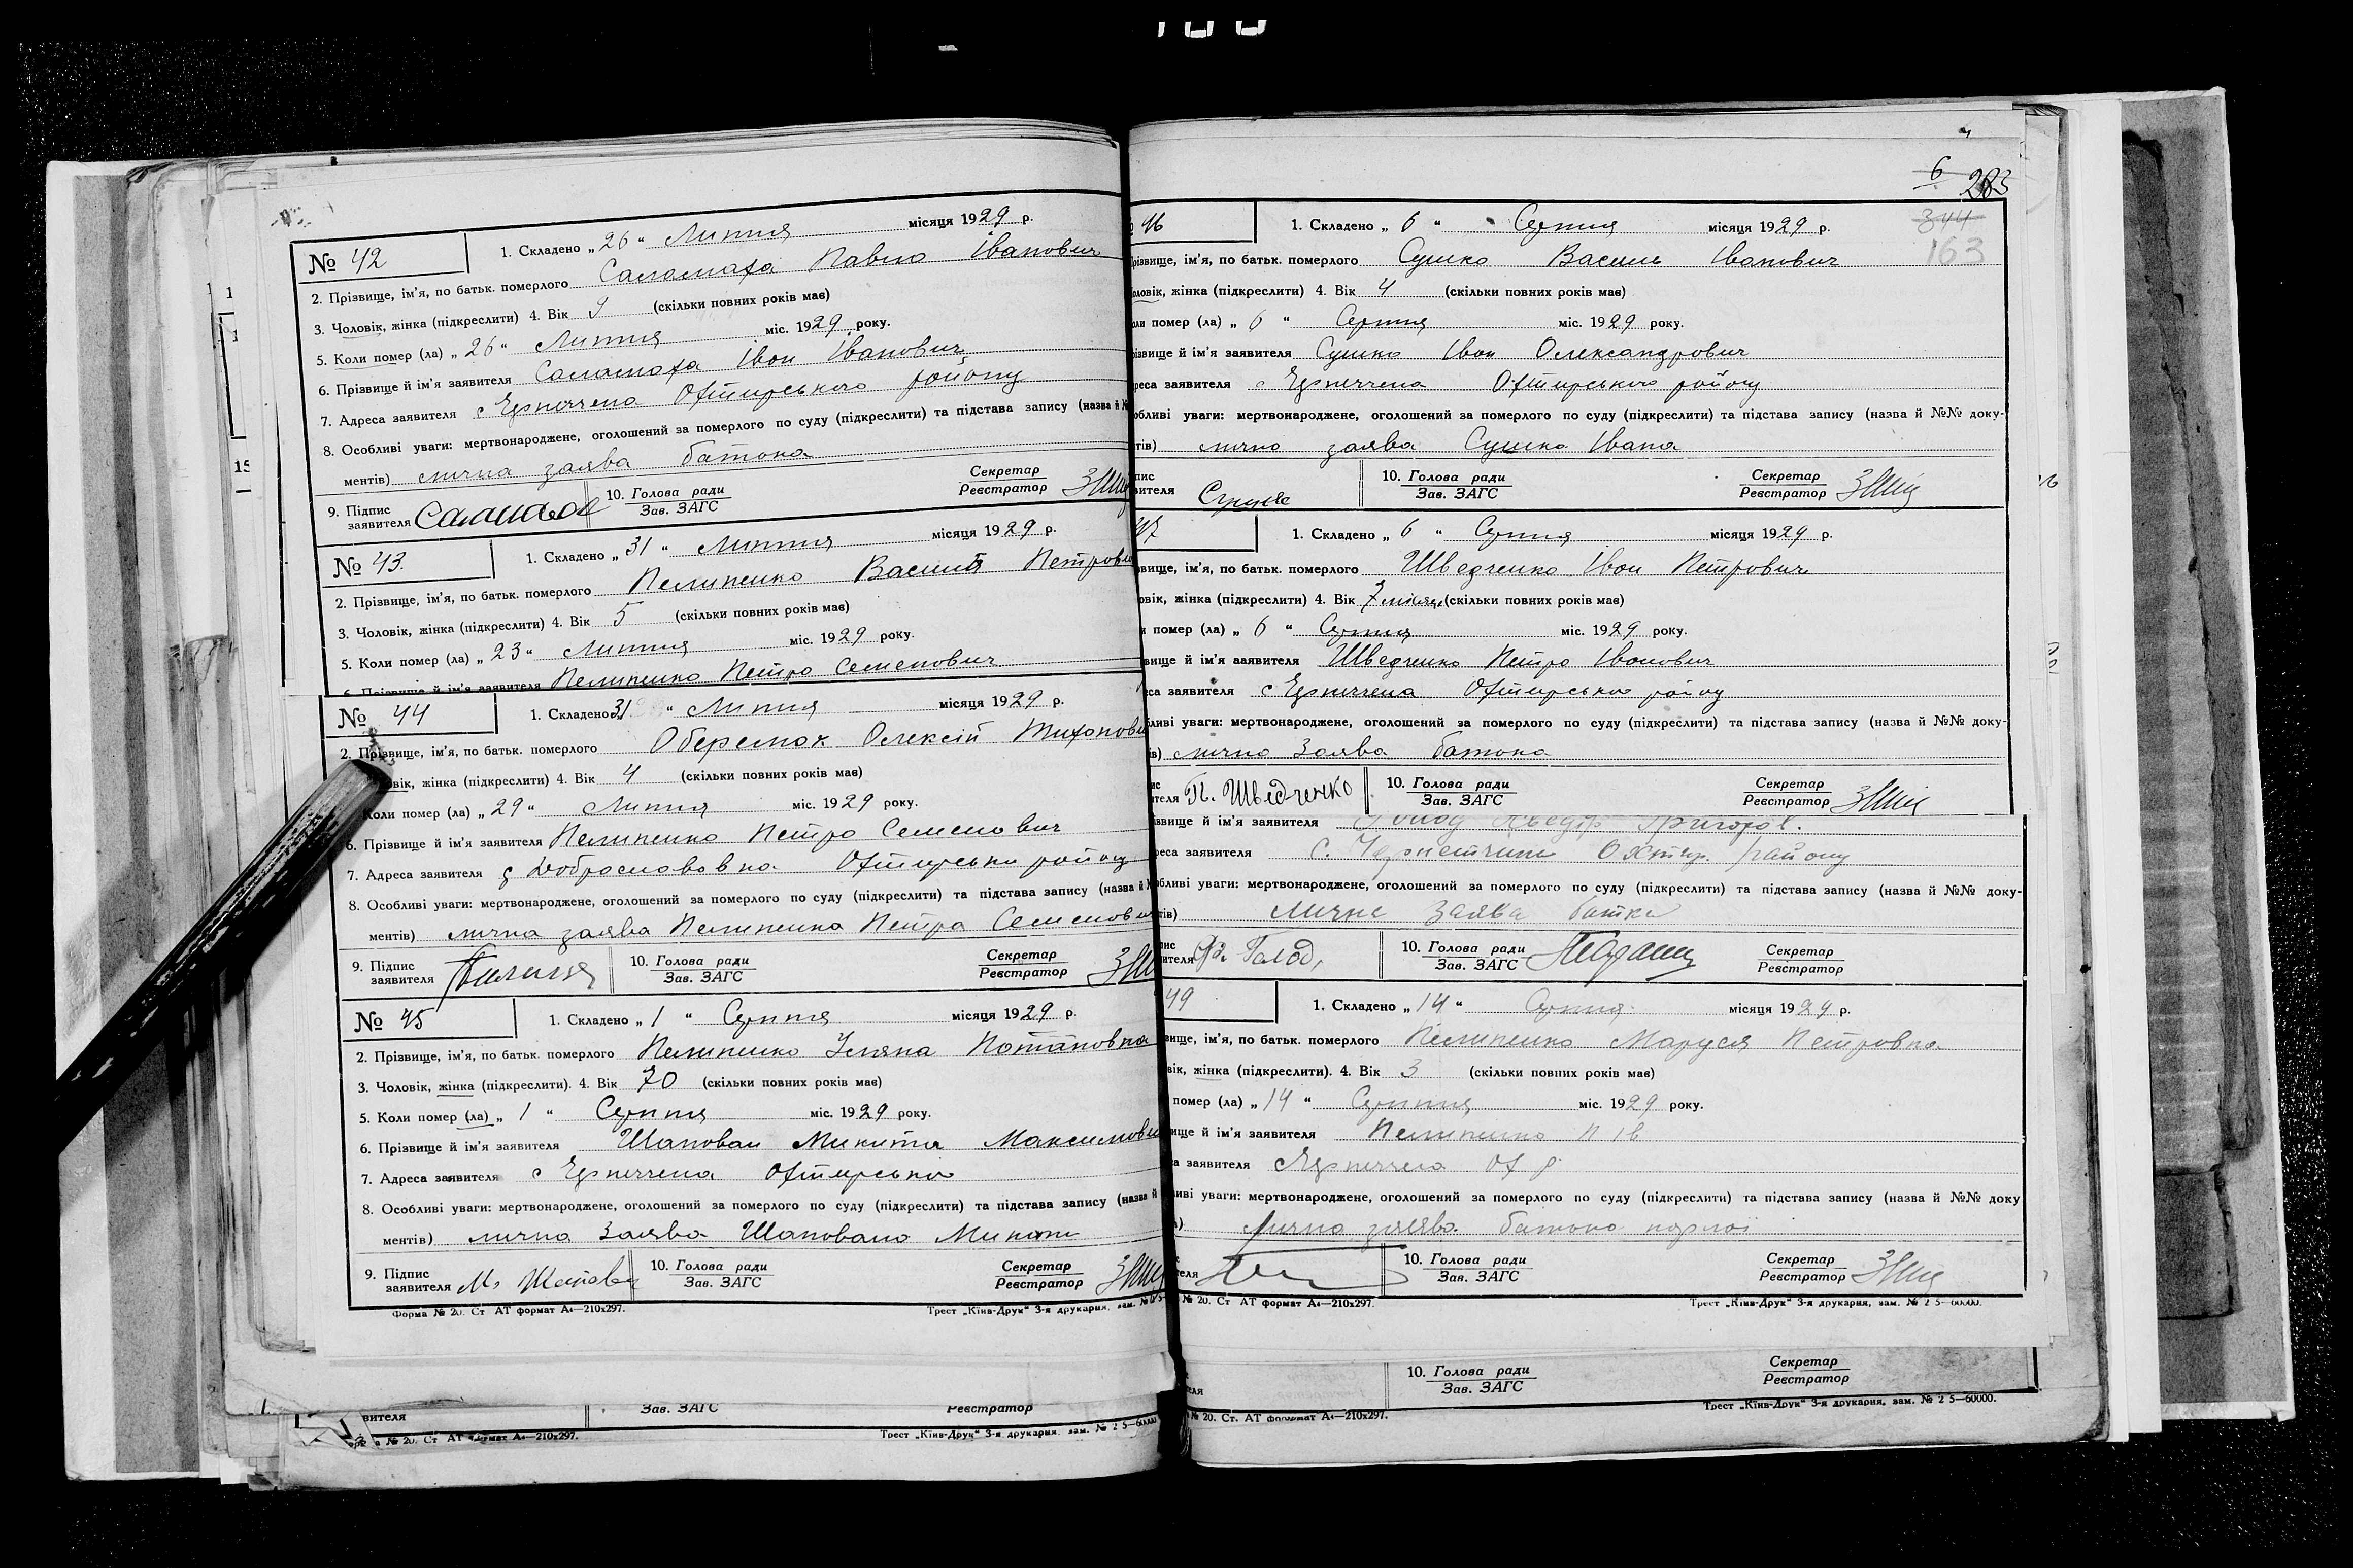 № 42
1. Складено „ 26 “ Липня місяця 1929 р.
2. Прізвище, ім'я, по батьк. померлого Саламаха Павло Іванович
3. Чоловік, жінка (підкреслити) 4. Вік (скільки повних років має)
5. Коли помер (ла) „ 26 “ Липня міс. 1929 року.
6. Прізвище й ім'я заявителя Саламаха Іван Іванович
7. Адреса заявителя с Охтирського району
8. Особливі уваги: мертвонароджене, оголошений за померлого по суду (підкреслити) та підстава запису (назва й №
ментів) лична заява батька
9. Підпис заявителя
10. Голова ради
Зав. ЗАГС
Секретар
Реєстратор
№ 43.
1. Складено „ 31 “ Липня місяця 1929 р.
2. Прізвище, ім'я, по батьк. померлого Пелипенко Василь Петрови
3. Чоловік, жінка (підкреслити) 4. Вік 5 (скільки повних років має)
5. Коли помер (ла) „ 23 “ Липня міс. 1929 року.
6. Прізвище й ім'я заявителя Пелипенко Петро Семенович
№ 44
1. Складено 31 “ Липня місяця 1929 р.
2. Прізвище, ім'я, по батьк. померлого Оберемок Олексій Тихонови
овік, жінка (підкреслити) 4. Вік 4 (скільки повних років має)
Коли помер (ла) „ 29 “ Липня міс. 1929 року.
6. Прізвище й ім'я заявителя Пелипенко Петро Семенович
7. Адреса заявителя Доброславовка Охтирськи району
8. Особливі уваги: мертвонароджене, оголошений за померлого по суду (підкреслити) та підстава запису (назва й
ментів) лична заява Пелипенка Петра Семенов
9. Підпис заявителя
10. Голова ради
Зав. ЗАГС
Секретар
Реєстратор
№ 45
1. Складено „ 1 “ Серпня місяця 1929 р.
2. Прізвище, ім'я, по батьк. померлого Пелипенко Уляна Потаповна
3. Чоловік, жінка (підкреслити). 4. Вік 70 (скільки повних років має)
5. Коли помер (ла) „ 1 “ Серпня міс. 1929 року.
6. Прізвище й ім'я заявителя Шаповал Микита Максимови
7. Адреса заявителя с Охтирсько
8. Особливі уваги: мертвонароджене, оголошений за померлого по суду (підкреслити) та підстава запису (назва й
ментів) лична Заява Шаповала Микити
9. Підпис заявителя М. Шаповал
10. Голова ради
Зав. ЗАГС
Секретар
Реєстратор
Форма № 20. Ст АТ формат А4—210х297.
Трест „Київ-Друк“ 3-я друкарня, зам. №
6
283
344
163
46
1. Складено „ 6 “ Серпня місяця 1929 р.
різвище, ім'я, по батьк. померлого Сушко Василь Іванович
оловік, жінка (підкреслити) 4. Вік 4 (скільки повних років має)
оли помер (ла) „ 6 “ Серпня міс. 1929 року.
різвище й ім'я заявителя Сушко Іван Олександрович
реса заявителя с Охтирського району
обливі уваги: мертвонароджене, оголошений за померлого по суду (підкреслити) та підстава запису (назва й №№ доку-
тів) лична заява Сушко Івана
пис
вителя
10. Голова ради
Зав. ЗАГС
Секретар
Реєстратор
47
1. Складено „ 6 “ Серпня місяця 1929 р.
звище, ім'я, по батьк. померлого Шведченко Іван Петрович
овік, жінка (підкреслити) 4. Вік 7 місяц (скільки повних років має)
и помер (ла) „ 6 “ Серпня міс. 1929 року.
вище й ім'я заявителя Шведченко Петро Іванович
еса заявителя с Охтирсько району
бливі уваги: мертвонароджене, оголошений за померлого по суду (підкреслити) та підстава запису (назва й №№ доку-
ів) лична Заява батька
П. Шведченко
10. Голова ради
Зав. ЗАГС
Секретар
Реєстратор
звище й ім'я заявителя Голод Григоров.
реса заявителя с. Чернеччина Охтир. району
обливі уваги: мертвонароджене, оголошений за померлого по суду (підкреслити) та підстава запису (назва й №№ доку-
тів) лична заява батька
пис
ителя Голод
10. Голова ради
Зав. ЗАГС
Секретар
Реєстратор
49
1. Складено „ 14 “ Серпня місяця 1929 р.
вище, ім'я, по батьк. померлого Пелипенко Маруся Петровна
вік, жінка (підкреслити). 4. Вік 3 (скільки повних років має)
помер (ла) „ 14 “ Серпня міс. 1929 року.
ище й ім'я заявителя Пелипенко П Ів
а заявителя с Ох р
ливі уваги: мертвонароджене, оголошений за померлого по суду (підкреслити) та підстава запису (назва й №№ доку
лична заява батька
10. Голова ради
Зав. ЗАГС
Секретар
Реєстратор
№ 20. Ст АТ формат А4—210х297.
Трест „Київ-Друк“ 3-я друкарня, зам. № 2 5—60000.
10. Голова ради
Зав. ЗАГС
Секретар
Реєстратор
№ 20. Ст. АТ формат А4—210х297.
Трест „Київ-Друк“ 3-я друкарня, зам. № 2 5—60000.
вителя
Зав. ЗАГС
Реєстратор
№ 20. Ст АТ формат А4—210х297.
Трест „Київ-Друк“ 3-я друкарня, зам. № 2 5—60000